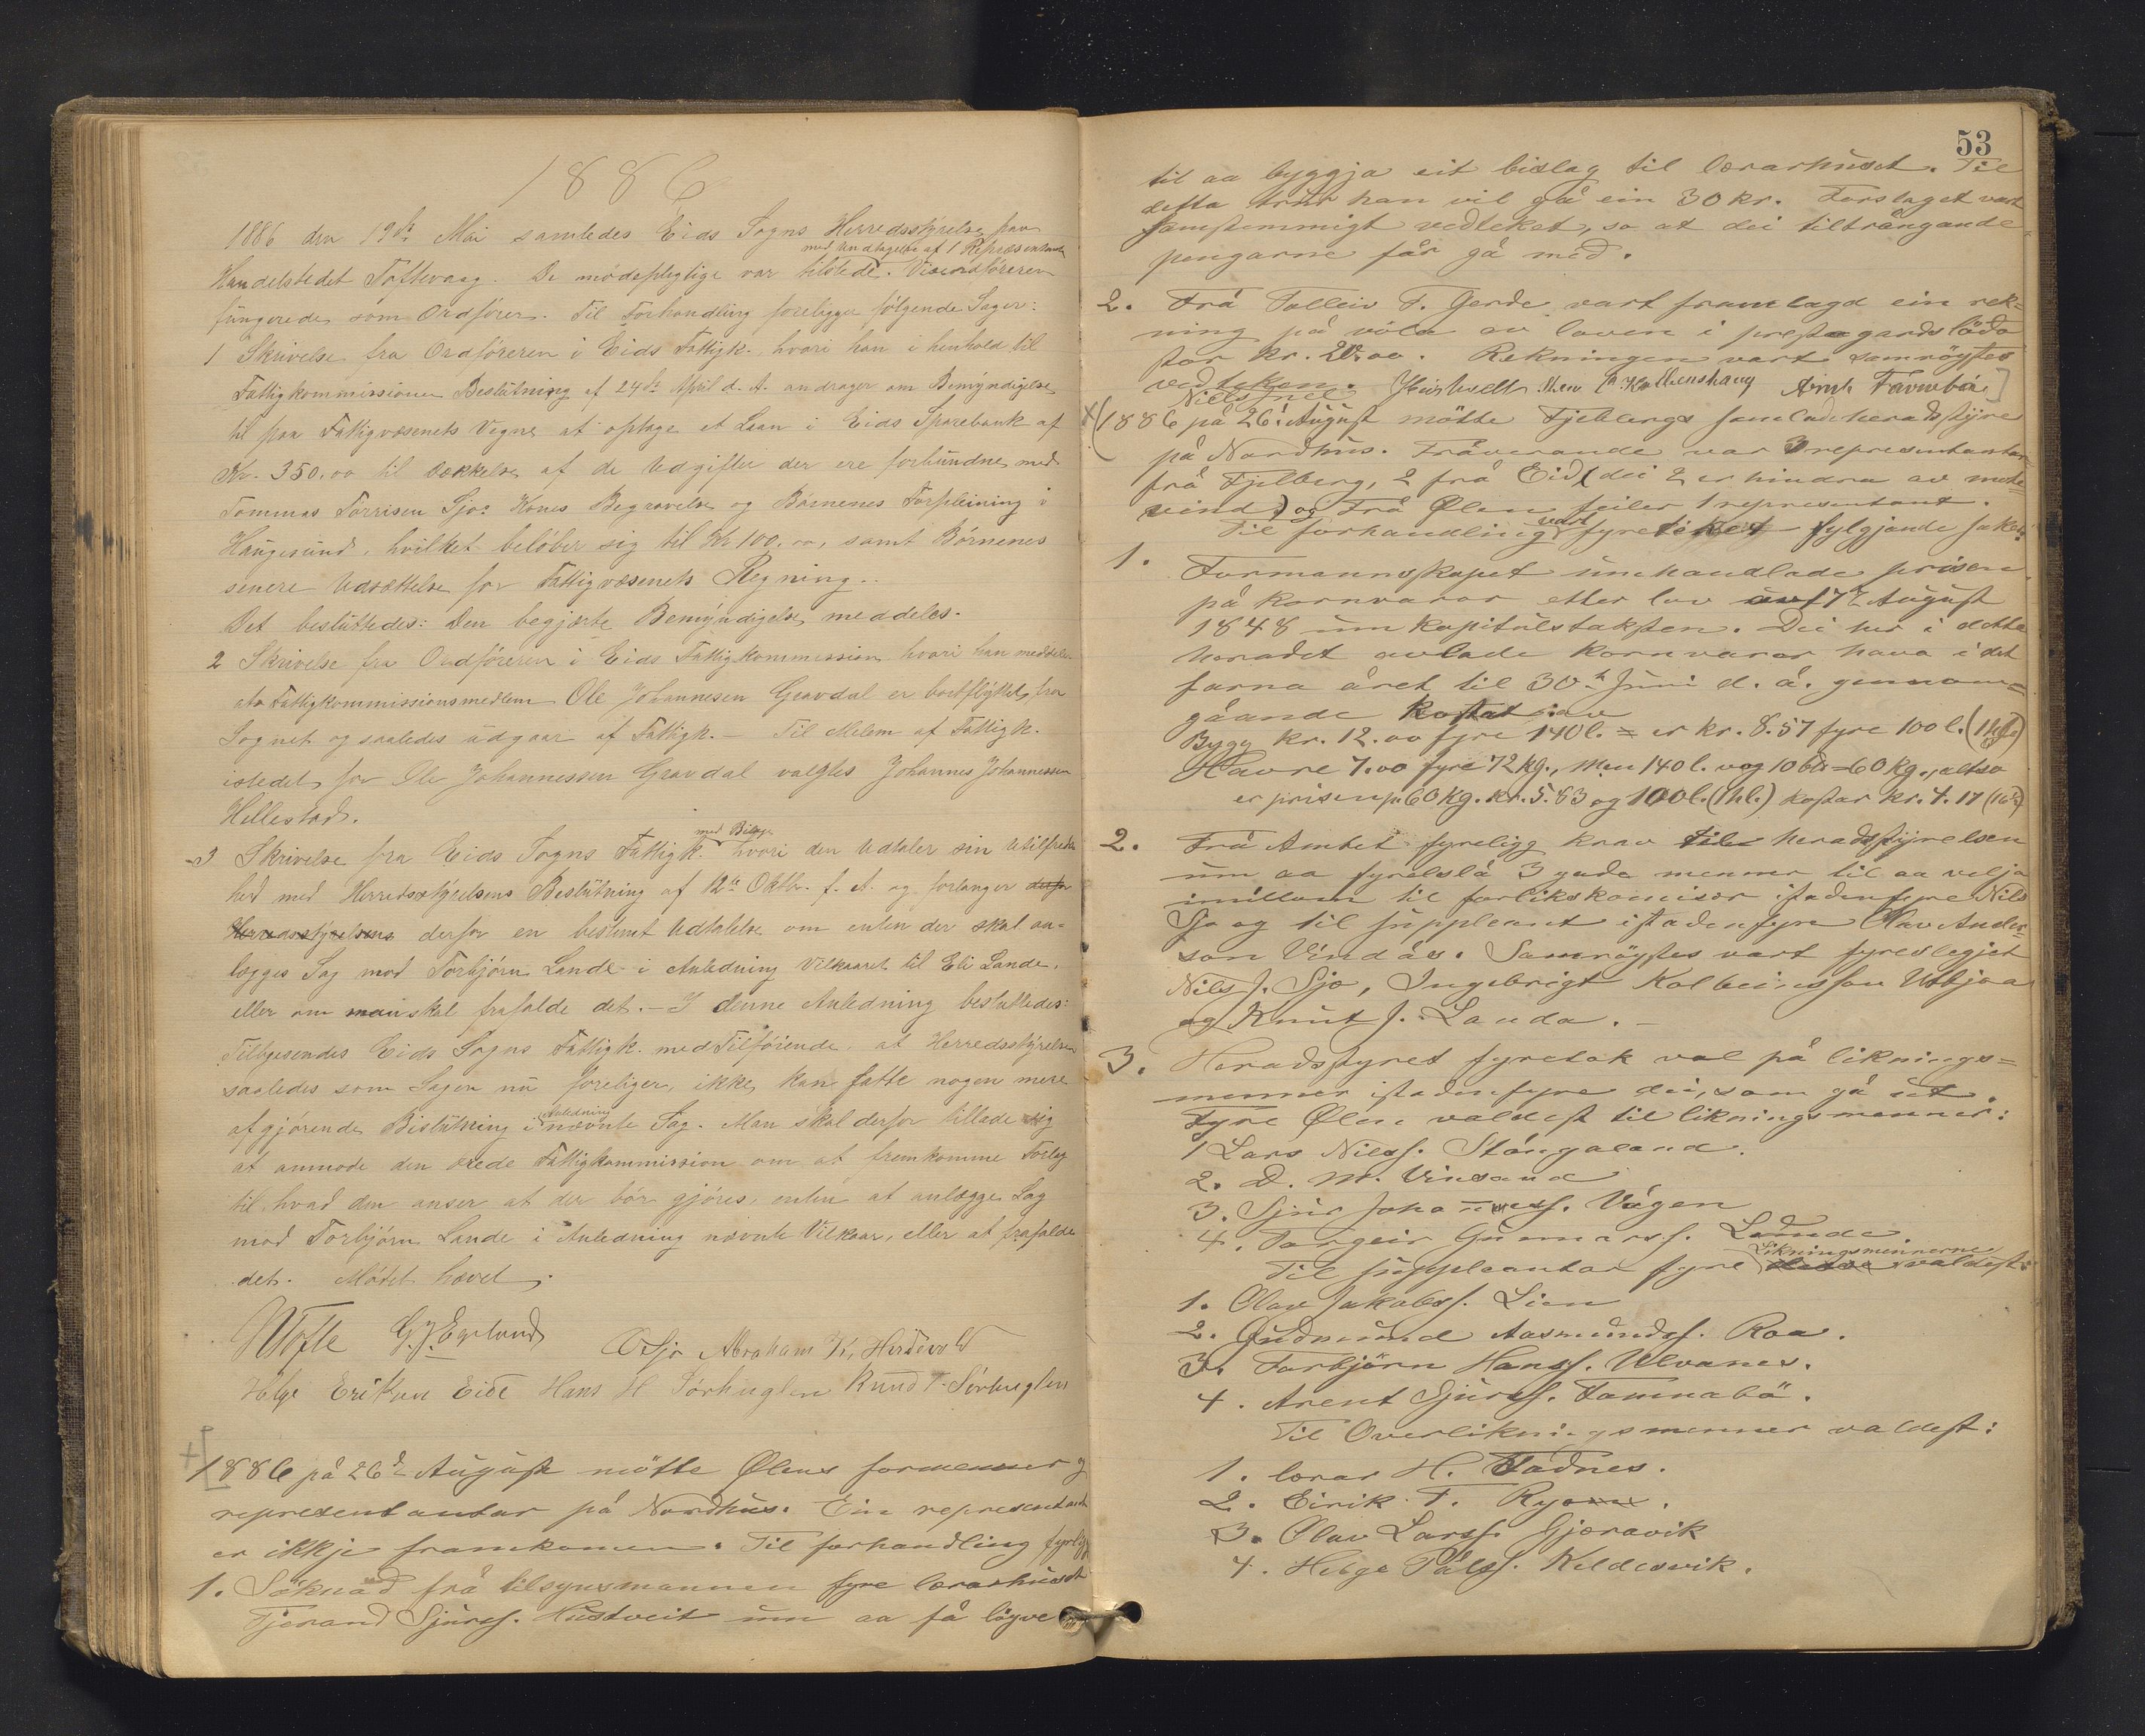 1886
1886 den 19de Mai samledes Eids Sogns Herredsstyrelse paa
med Undtagelse af 1 Repræsentant
Handelstedet Toftevaag. De mødepligtige var tilstede. Viceordføreren
fungerede som Ordfører. Til Forhandling foreligger følgende Sager:
1 Skrivelse fra Ordføreren i Eids Fattigk. hvori han i henhold til
Fattigkommissionens Beslutning af 24de April d. A. andrager om Bemyndigelse
til paa Fattigvæsenets Vegne at optage et Laan i Eids Sparebank af
Kr. 350,00 til Dækkelse af de Udgifter der ere forbundne med
Tommas Torrisen Sjos Kones Begravelse og Børnenes Forpleining i
Haugesund, hvilket beløber sig til Kr 100,00, samt Børnenes
senere Udsættelse for Fattigvæsenets Regning..
Det besluttedes: Den begjærte Bemyndigelse meddeles.
2 Skrivelse fra Ordføreren i Eids Fattigkommission hvori han meddeler
at Fattigkommissionsmedlem Ole Johannesen Gravdal er bortflyttet fra
Sognet og saaledes udgaar af Fattigk. – Til Melem af Fattigk.
istedet for Ole Johannessen Gravdal valgtes Johannes Johannessen
Hellestad.
med Bilage
3 Skrivelse fra Eids Sogns Fattigk. hvori den Udtaler sin Utilfreds
hed med Herredsstyrelsens Beslutning af 12te Oktbr. f. A. og forlanger derfor
Herredsstyrelsens derfor en bestemt Udtalelse om enten der skal an=
lægges Sag mod Torbjørn Lande i Anledning Vilkaaret til Eli Lande,
eller om man skal frafalde det. – I denne Anledning besluttedes:
Tilbagesendes Eids Sogns Fattigk. med Tilføiende, at Herredsstyrelsen
saaledes som Sagen nu foreliger, ikke kan fatte nogen mere
Anledning
afgjørende Beslutning i nævnte Sag. Man skal derfor tillade sig
at anmode den ærede Fattigkommission om at fremkomme Forslag
til hvad den anser at der bør gjøres, enten at anlægge Sag
mod Torbjørn Lande i Anledning nævnte Vilkaar, eller at frafalde
det. Mødet hævet.
Tofte G. J. Egeland O Sjo Abraham K. Herdevold
Helge Eriksen Eide Hans H Sørhuglen Knud T. Sørhuglen
1886 på 26de August møtte Ølens formenner og
representantar på Nordhus. Ein representant
er ikkje framkomen. Til forhandling fyrligg
1. Søknad frå tilsynsmannen fyre lærarhuset
Tjerand Sjurss. Hustveit um aa få løyve
53
til aa byggja eit bislag til lærarhuset. Til
detta trur han vil gå ein 30 kr. Forslaget vart
samstemmigt vedteket, so at dei tiltrångande
pengarne får gå med.
2. Frå Tolleiv T. Gjerde vart framlagd ein rek=
ning på vøla av laven i prestagardsløda
stor kr. 20.00. Rekningen vart samrøystes
vedteken.
1886 på 26. August møtte Fjellbergs samlade heradstyre
på Nordhus. Fråverande var 3 representantar
frå Fjelberg, 2 frå Eid (dei 2 er hindra av mote=
vind) og frå Ølen feiler 1 representant.
Til forhandling vart fyreteket fylgjande saker:
1. Formannskapet umhandlade prisen
på kornvaror etter lov av 17de August
1848 um kapitulstaksten. Dei her i detta
heradet avlade kornvaror hava i det
farna året til 30te Juni d. å. gjennom=
gåande kostat:
Bygg kr. 12.00 fyre 140 l. = er kr. 8.57 fyre 100 l. (1 hl)
Havre 7.00 fyre 72 kg., men 140 l. vog 60 kg., altso
er prisen p. 60 kg. kr. 5.83 og 100 l. (1hl.) kostar kr. 4.17
2. Frå Amtet fyreligg krav til heradstyrelsen
um aa fyreslå 3 gode menner til aa velja
imillom til forlikskomisær istadenfyre Nils
Sjo og til suppleant istadenfyre Olav Ander=
son Vindås. Samrøystes vart fyreslegjet
Nils J. Sjo, Ingebrigt Kolbeinsson Utbjoa
og Knut J. Landa. –
3. Heradstyret fyretok val på liknings=
menner istadenfyre dei, som gå ut.
Fyre Ølen valdest til likningsmenner:
1 Lars Nilss. Stångaland.
2. D. M. Vinsand
3. Sjur Johanness. Vågen
4. Torgeir Gunnarss. Lunde.
Likningsmennerne
Til suppleantar fyre valdest:
1. Olav Jakobss. Lien
2. Gudmund Aasmundss. Roa.
3. Torbjørn Hanss. Ulvanes.
4. Arent Sjurss. Tamnabø.
Til Overlikningsmenner valdest:
1. lærar H. Tadnes.
2. Eirik T. Ryom.
3. Olav Larss. Gjeravik
4. Helge Pålss. Keldesvik.